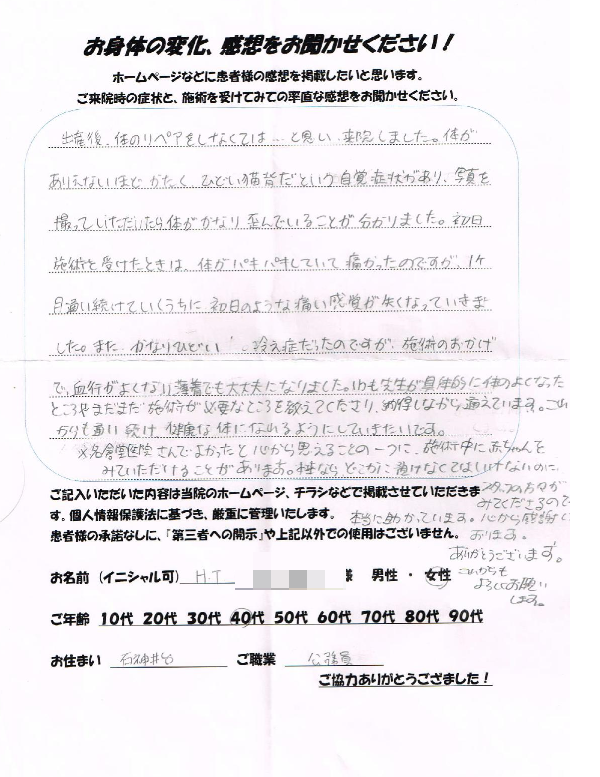 お身体の変化、感想をお聞かせください！
ホームページなどに患者様の感想を掲載したいと思います。
ご来院時の症状と、施術を受けてみての率直な感想をお聞かせください。
出産後、体のリペアをしなくては…と思い、来院しました。体が
ありえないほどかたく ひどい猫背だという自覚症状があり、写真を
撮っていただいたら体がかなり歪んでいることが分かりました。初日
施術を受けたときは、体がバキバキしていて痛かったのですが、1ヶ
月通い続けていくうちに初日のような痛い感覚が失くなっていきま
した。また、かなりひどい 冷え症だったのですが、施術のおかげ
で、血行がよくなり薄着でも大丈夫になりました。いつも先生が具体的に体のよくなった
ところやまだまだ施術が必要なところを教えてくださり、納得しながら通えています。これ
からも通い続け健康な体になれるようにしていきたいです。
※名倉堂医院さんでよかったと心から思えることの一つに、施術中に赤ちゃんを
みていただけることがあります。本来ならどこかに預けなくてはいけないのに、
スタッフの方々が
みてくださるので
本当に助かっています。心から感謝して
おります。
ありがとうございます。
これからも
よろしくお願い
します。
ご記入いただいた内容は当院のホームページ、チラシなどで掲載させていただきま
す。個人情報保護法に基づき、厳重に管理いたします。
患者様の承諾なしに、「第三者への開示」や上記以外での使用はございません。
お名前（イニシャル可） H.T 様 男性 ・ 女性
ご年齢 10代 20代 30代 40代 50代 60代 70代 80代 90代
お住まい 石神井台 ご職業 公務員
ご協力ありがとうござました！